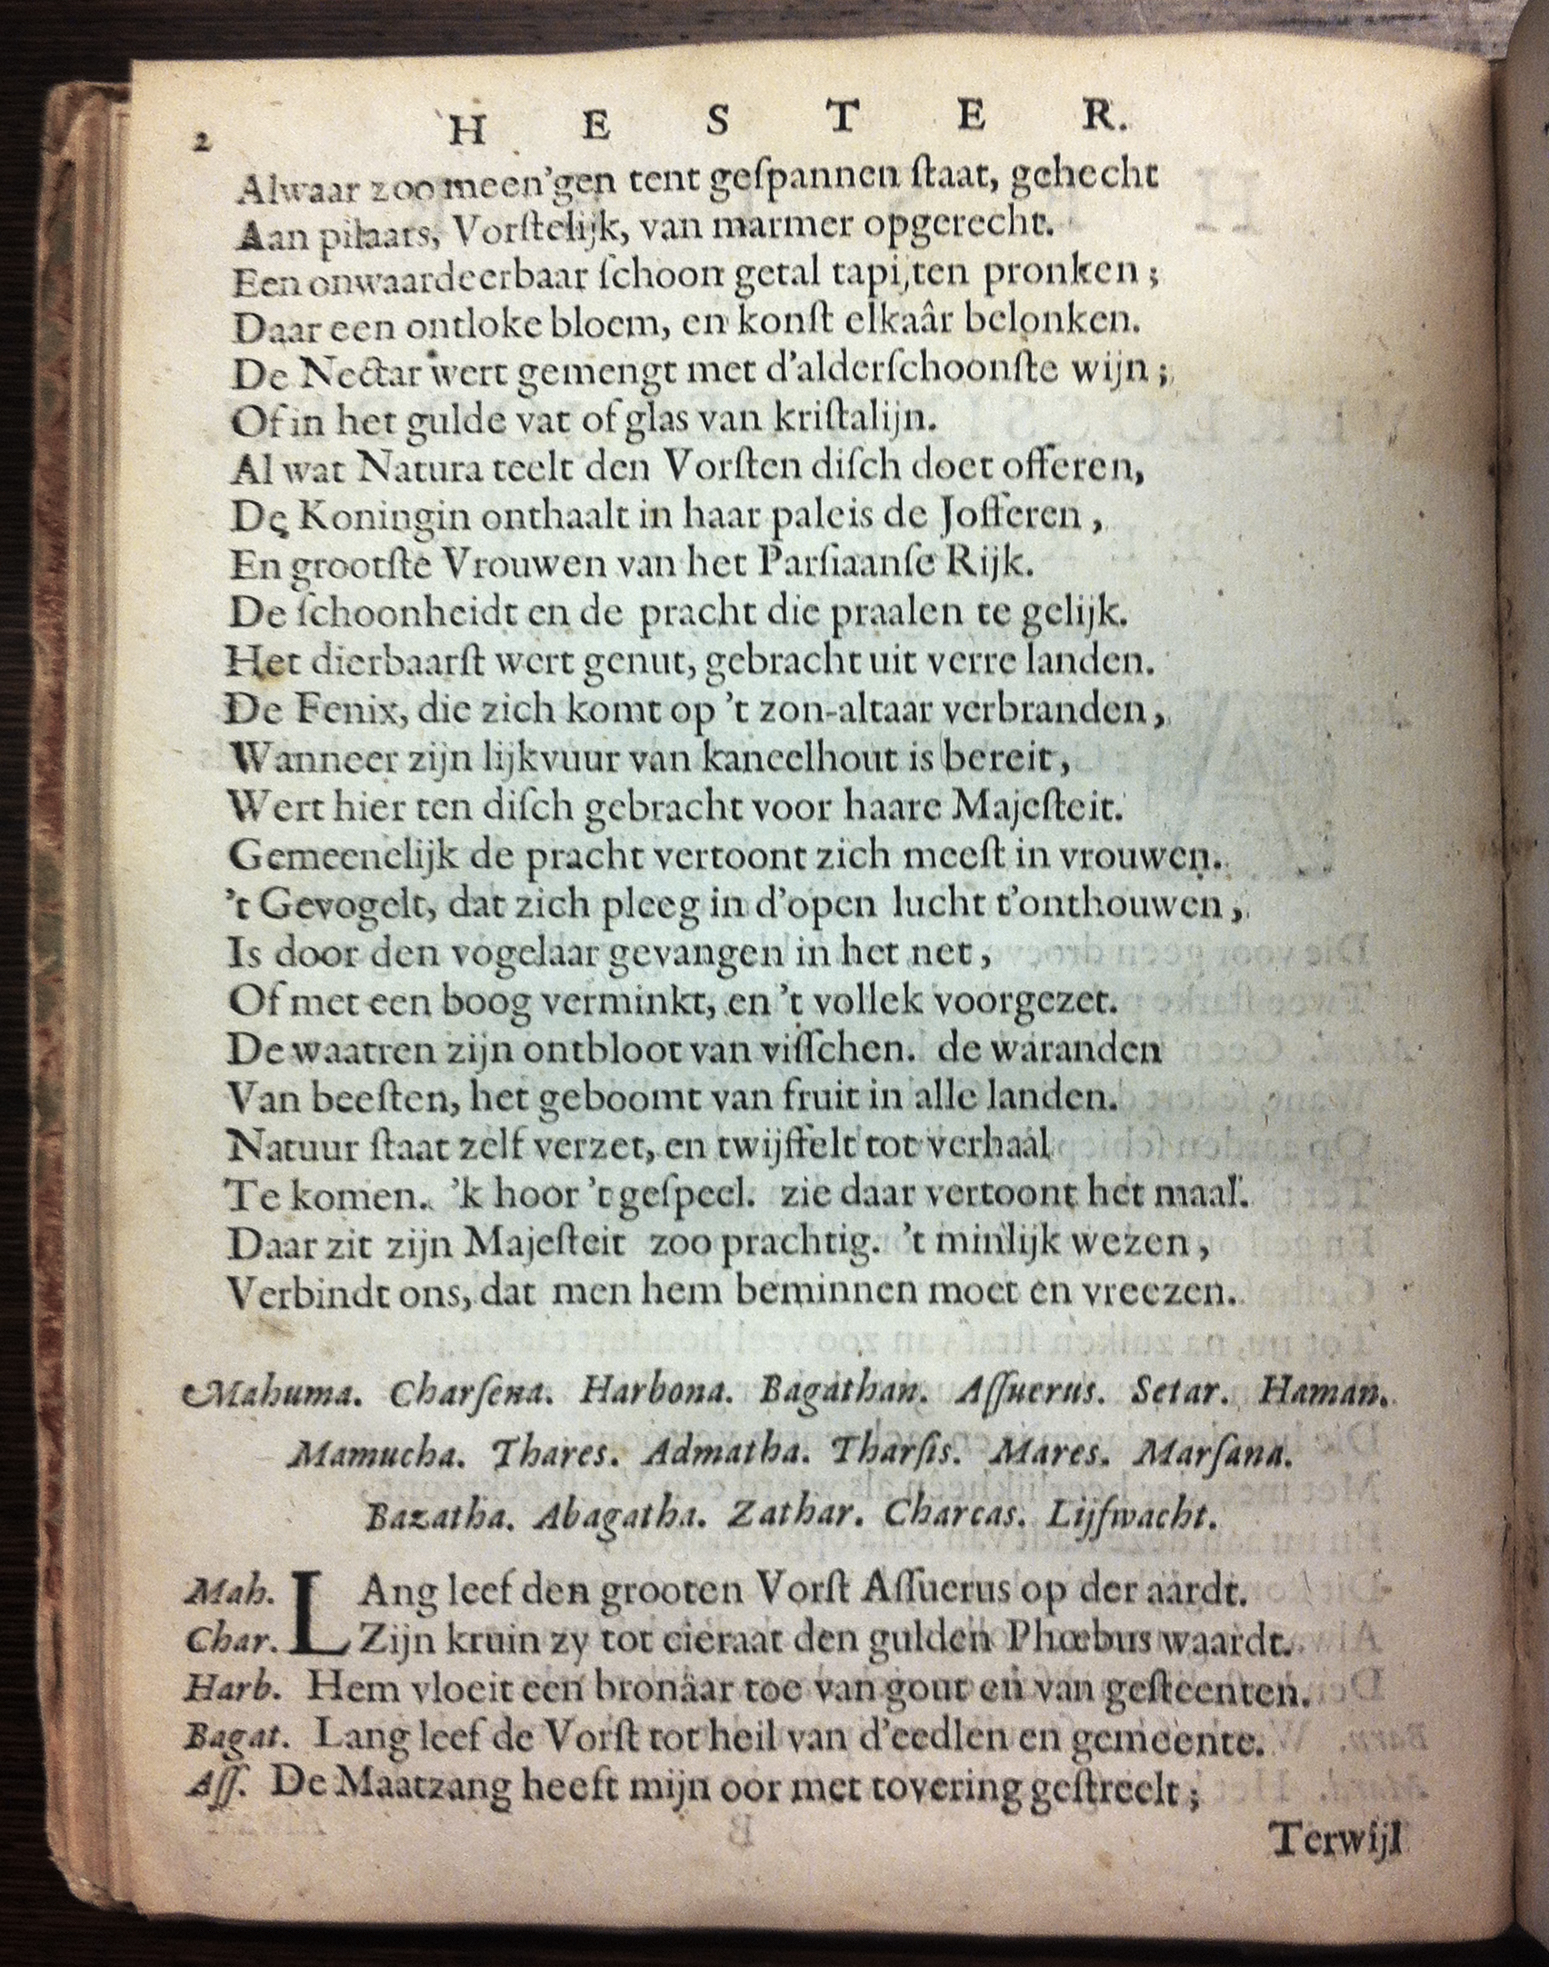 2 H E S T E R.
Alwaar zoo meen'gen tent geſpannen ſtaat, gehecht
Aan pilaars, Vorſtelijk, van marmer opgerecht.
Een onwaardeerbaar ſchoon getal tapijten pronken;
Daar een ontloke bloem, en konſt elkaâr belonken.
De Nectar wert gemengt met d'alderſchoonſte wijn;
Of in het gulde vat of glas van kriſtalijn.
Al wat Natura teelt den Vorſten diſch doet offeren,
De Koningin onthaalt in haar paleis de Jofferen,
En grootſte Vrouwen van het Parſiaanſe Rijk.
De ſchoonheidt en de pracht die praalen te gelijk.
Het dierbaarſt wert genut, gebracht uit verre landen.
De Fenix, die zich komt op 't zon-altaar verbranden,
Wanneer zijn lijkvuur van kaneelhout is bereit,
Wert hier ten diſch gebracht voor haare Majeſteit.
Gemeenelijk de pracht vertoont zich meeſt in vrouwen.
't Gevogelt, dat zich pleeg in d'open lucht t'onthouwen,
Is door den vogelaar gevangen in het net,
Of met een boog verminkt, en 't vollek voorgezet.
De waatren zijn ontbloot van viſſchen. de waranden
Van beeſten, het geboomt van fruit in alle landen.
Natuur ſtaat zelf verzet, en twijffelt tot verhaal
Te komen. 'k hoor 't geſpeel. zie daar vertoont het maal.
Daar zit zijn Majeſteit zoo prachtig. 't minlijk wezen,
Verbindt ons, dat men hem beminnen moet en vreezen.
Mahuma. Charſena. Harbona. Bagathan. Aſſuerus. Setar. Haman.
Mamucha. Thares. Admatha. Tharſis. Mares. Marſana.
Bazatha. Abagatha. Zathar. Charcas. Lijfwacht.
Mah. LAng leef den grooten Vorſt Aſſuerus op der aardt.
Char. Zijn kruin zy tot cieraat den gulden Phœbus waardt.
Harb. Hem vloeit een bronaar toe van gout en van geſteenten.
Bagat. Lang leef de Vorſt tot heil van d'eedlen en gemeente.
Aſſ. De Maatzang heeft mijn oor met tovering geſtreelt;
Terwijl